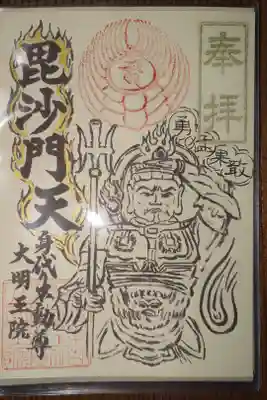 奉拝
勇猛果敢
毘沙門天
身代不動尊
大明王院